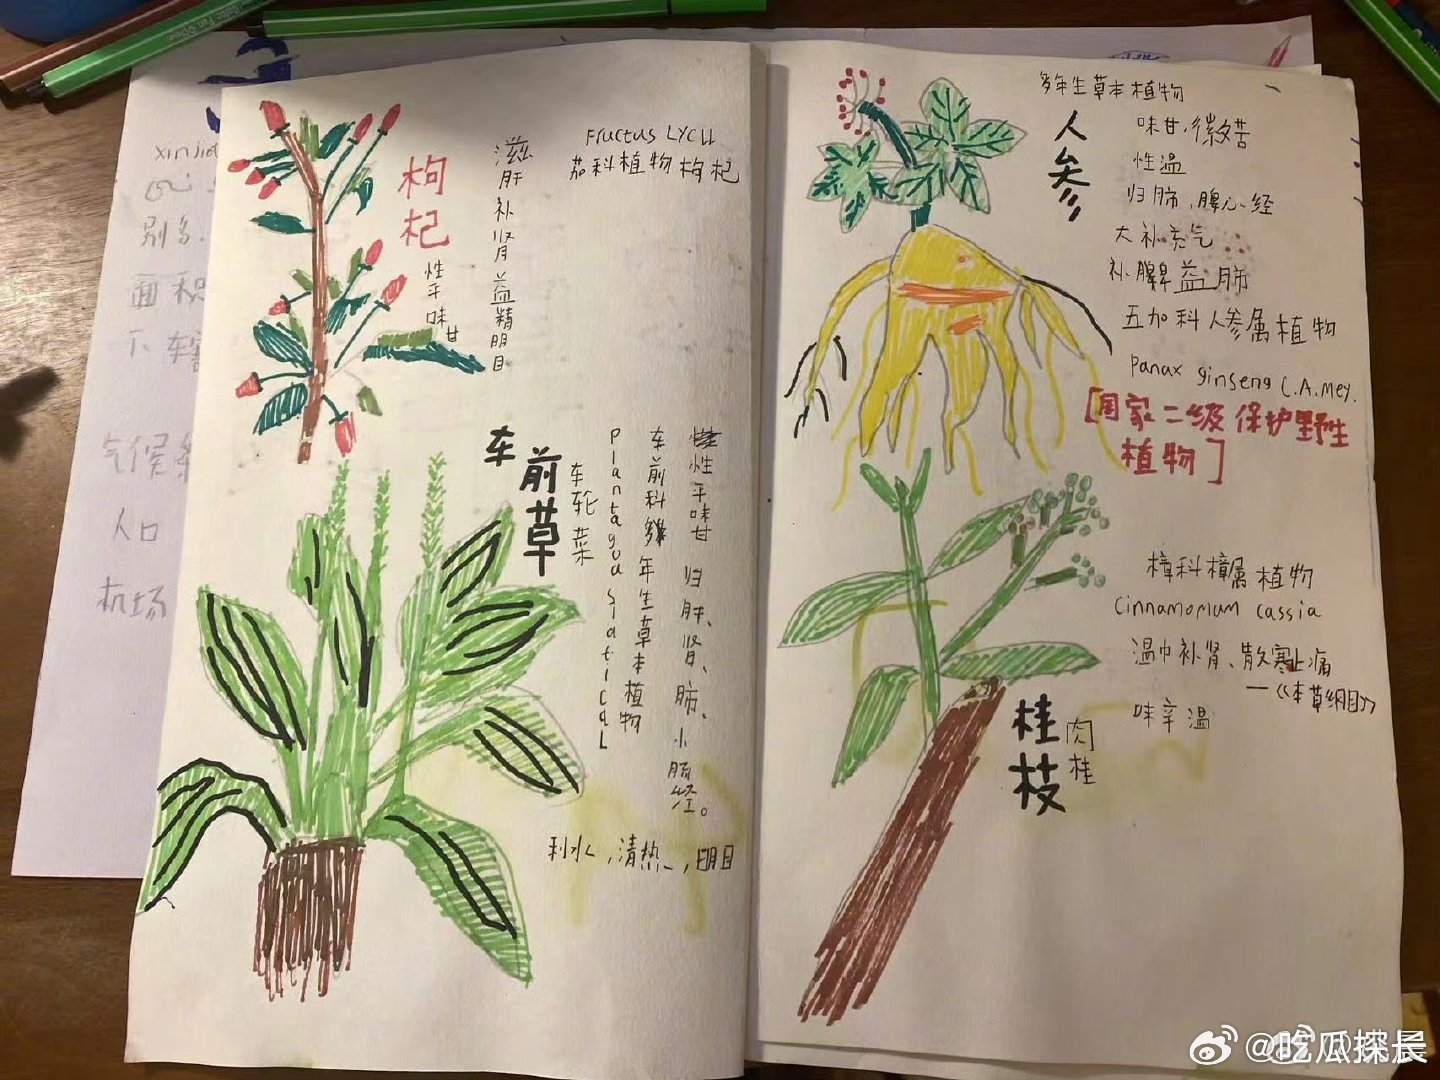 枸杞
性平味甘
滋肝补肾益精明目
Fructus LYCII
茄科植物枸杞
车前草
车轮菜
Plantagoa SiaticaL
车前科多年生草本植物
性平味甘 归肝、肾、肺、小肠经。
利水,清热,明目
多年生草本植物
人参
味甘、微苦
性温
归肺、脾、心经
大补元气
补脾益肺
五加科人参属植物
Panax ginseng C.A.Mey.
[国家二级保护野生
植物]
桂枝
肉桂
樟科樟属植物
Cinnamomum cassia
温中补肾、散寒止痛
—《本草纲目》
味辛温
xinjia
别名
面积
下辖
气候
人口
机场
@吃瓜探长